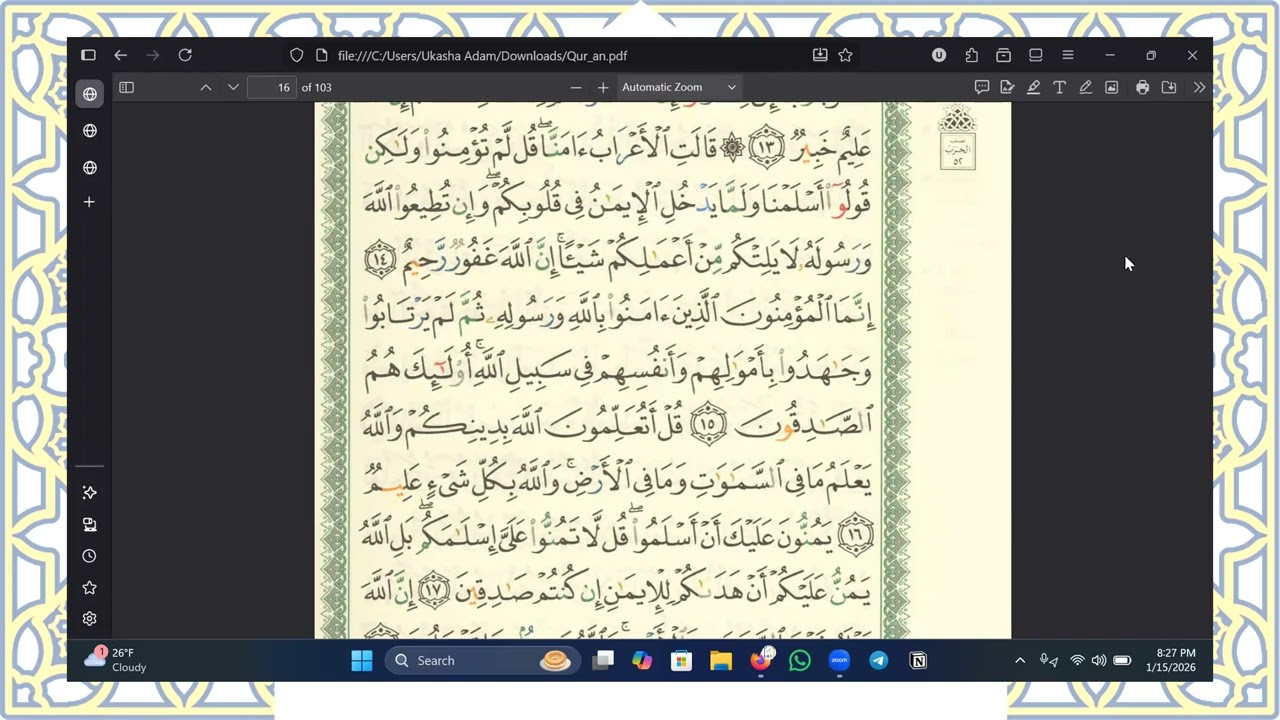 file:///C:/Users/Ukasha Adam/Downloads/Qur_an.pdf
U
16 of 103
Automatic Zoom
عَلِيمٌ خَبِيرٌ ١٣ ۞ قَالَتِ ٱلْأَعْرَابُ ءَامَنَّا ۖ قُل لَّمْ تُؤْمِنُوا۟ وَلَـٰكِن
قُولُوٓا۟ أَسْلَمْنَا وَلَمَّا يَدْخُلِ ٱلْإِيمَـٰنُ فِى قُلُوبِكُمْ ۖ وَإِن تُطِيعُوا۟ ٱللَّهَ
وَرَسُولَهُۥ لَا يَلِتْكُم مِّنْ أَعْمَـٰلِكُمْ شَيْـًٔا ۚ إِنَّ ٱللَّهَ غَفُورٌ رَّحِيمٌ ١٤
إِنَّمَا ٱلْمُؤْمِنُونَ ٱلَّذِينَ ءَامَنُوا۟ بِٱللَّهِ وَرَسُولِهِۦ ثُمَّ لَمْ يَرْتَابُوا۟
وَجَـٰهَدُوا۟ بِأَمْوَٰلِهِمْ وَأَنفُسِهِمْ فِى سَبِيلِ ٱللَّهِ ۚ أُو۟لَـٰٓئِكَ هُمُ
ٱلصَّـٰدِقُونَ ١٥ قُلْ أَتُعَلِّمُونَ ٱللَّهَ بِدِينِكُمْ وَٱللَّهُ
يَعْلَمُ مَا فِى ٱلسَّمَـٰوَٰتِ وَمَا فِى ٱلْأَرْضِ ۚ وَٱللَّهُ بِكُلِّ شَىْءٍ عَلِيمٌ
١٦ يَمُنُّونَ عَلَيْكَ أَنْ أَسْلَمُوا۟ ۖ قُل لَّا تَمُنُّوا۟ عَلَىَّ إِسْلَـٰمَكُم ۖ بَلِ ٱللَّهُ
يَمُنُّ عَلَيْكُمْ أَنْ هَدَىٰكُمْ لِلْإِيمَـٰنِ إِن كُنتُمْ صَـٰدِقِينَ ١٧ إِنَّ ٱللَّهَ
الحزب
٥٢
1
26°F
Cloudy
Search
zoom
8:27 PM
1/15/2026